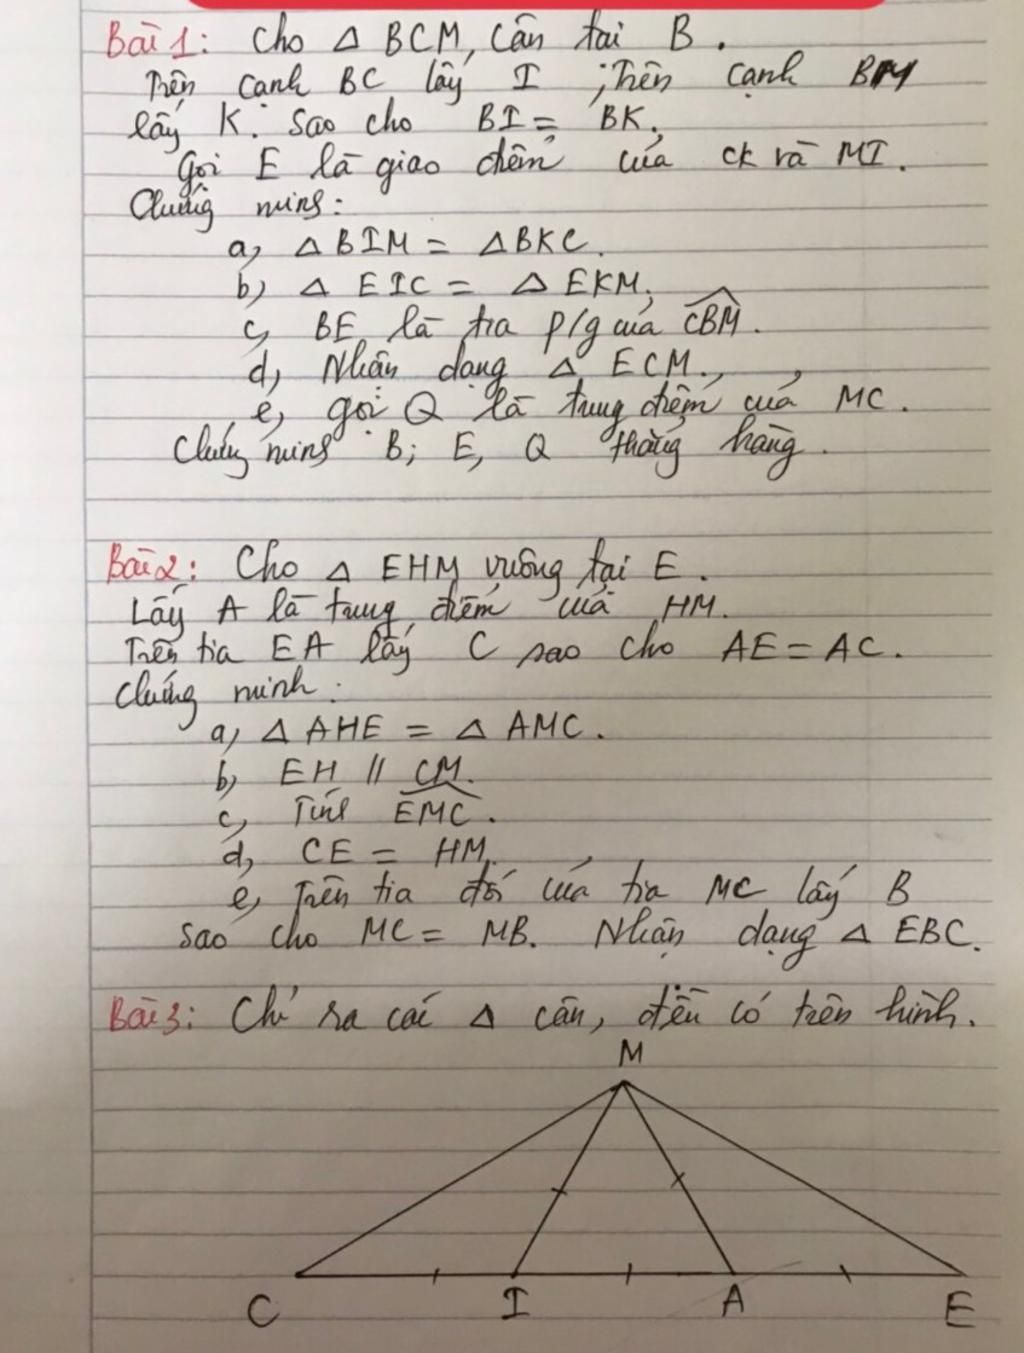 Bài 1: Cho Δ BCM, cân tại B.
Trên cạnh BC lấy I ; Trên cạnh BM
lấy K. Sao cho BI = BK.
Gọi E là giao điểm của CK và MI.
Chứng minh:
a, Δ BIM = Δ BKC.
b, Δ EIC = Δ EKM.
c, BE là tia p/g của CBM.
d, Nhận dạng Δ ECM.
e, gọi Q là trung điểm của MC.
Chứng minh B; E, Q thẳng hàng.
Bài 2: Cho Δ EHM vuông tại E.
Lấy A là trung điểm của HM.
Trên tia EA lấy C sao cho AE = AC.
Chứng minh:
a, Δ AHE = Δ AMC.
b, EH // CM.
c, Tính EMC.
d, CE = HM.
e, Trên tia đối của tia MC lấy B
sao cho MC = MB. Nhận dạng Δ EBC.
Bài 3: Chỉ ra các Δ cân, đều có trên hình.
M
C I A E